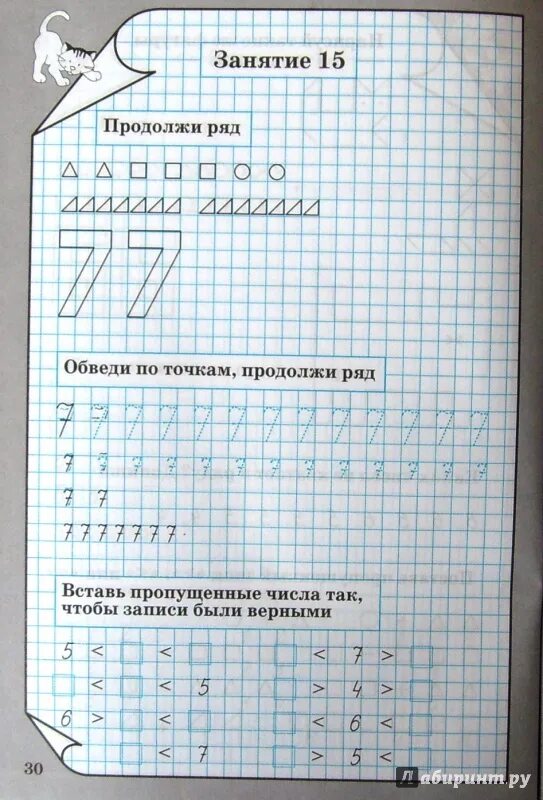 Занятие 15
Продолжи ряд
77
Обведи по точкам, продолжи ряд
7 7 7 7 7 7 7 7 7 7 7 7 7
7 7 7 7 7 7 7 7 7 7 7 7 7
7 7
7777777
Вставь пропущенные числа так,
чтобы записи были верными
5 < □ < □ □ < 7 > □
□ < □ < 5 □ > 4 > □
6 > □ < □ □ < 6 < □
□ < 7 □ > 5 < □
30
Лабиринт.ру